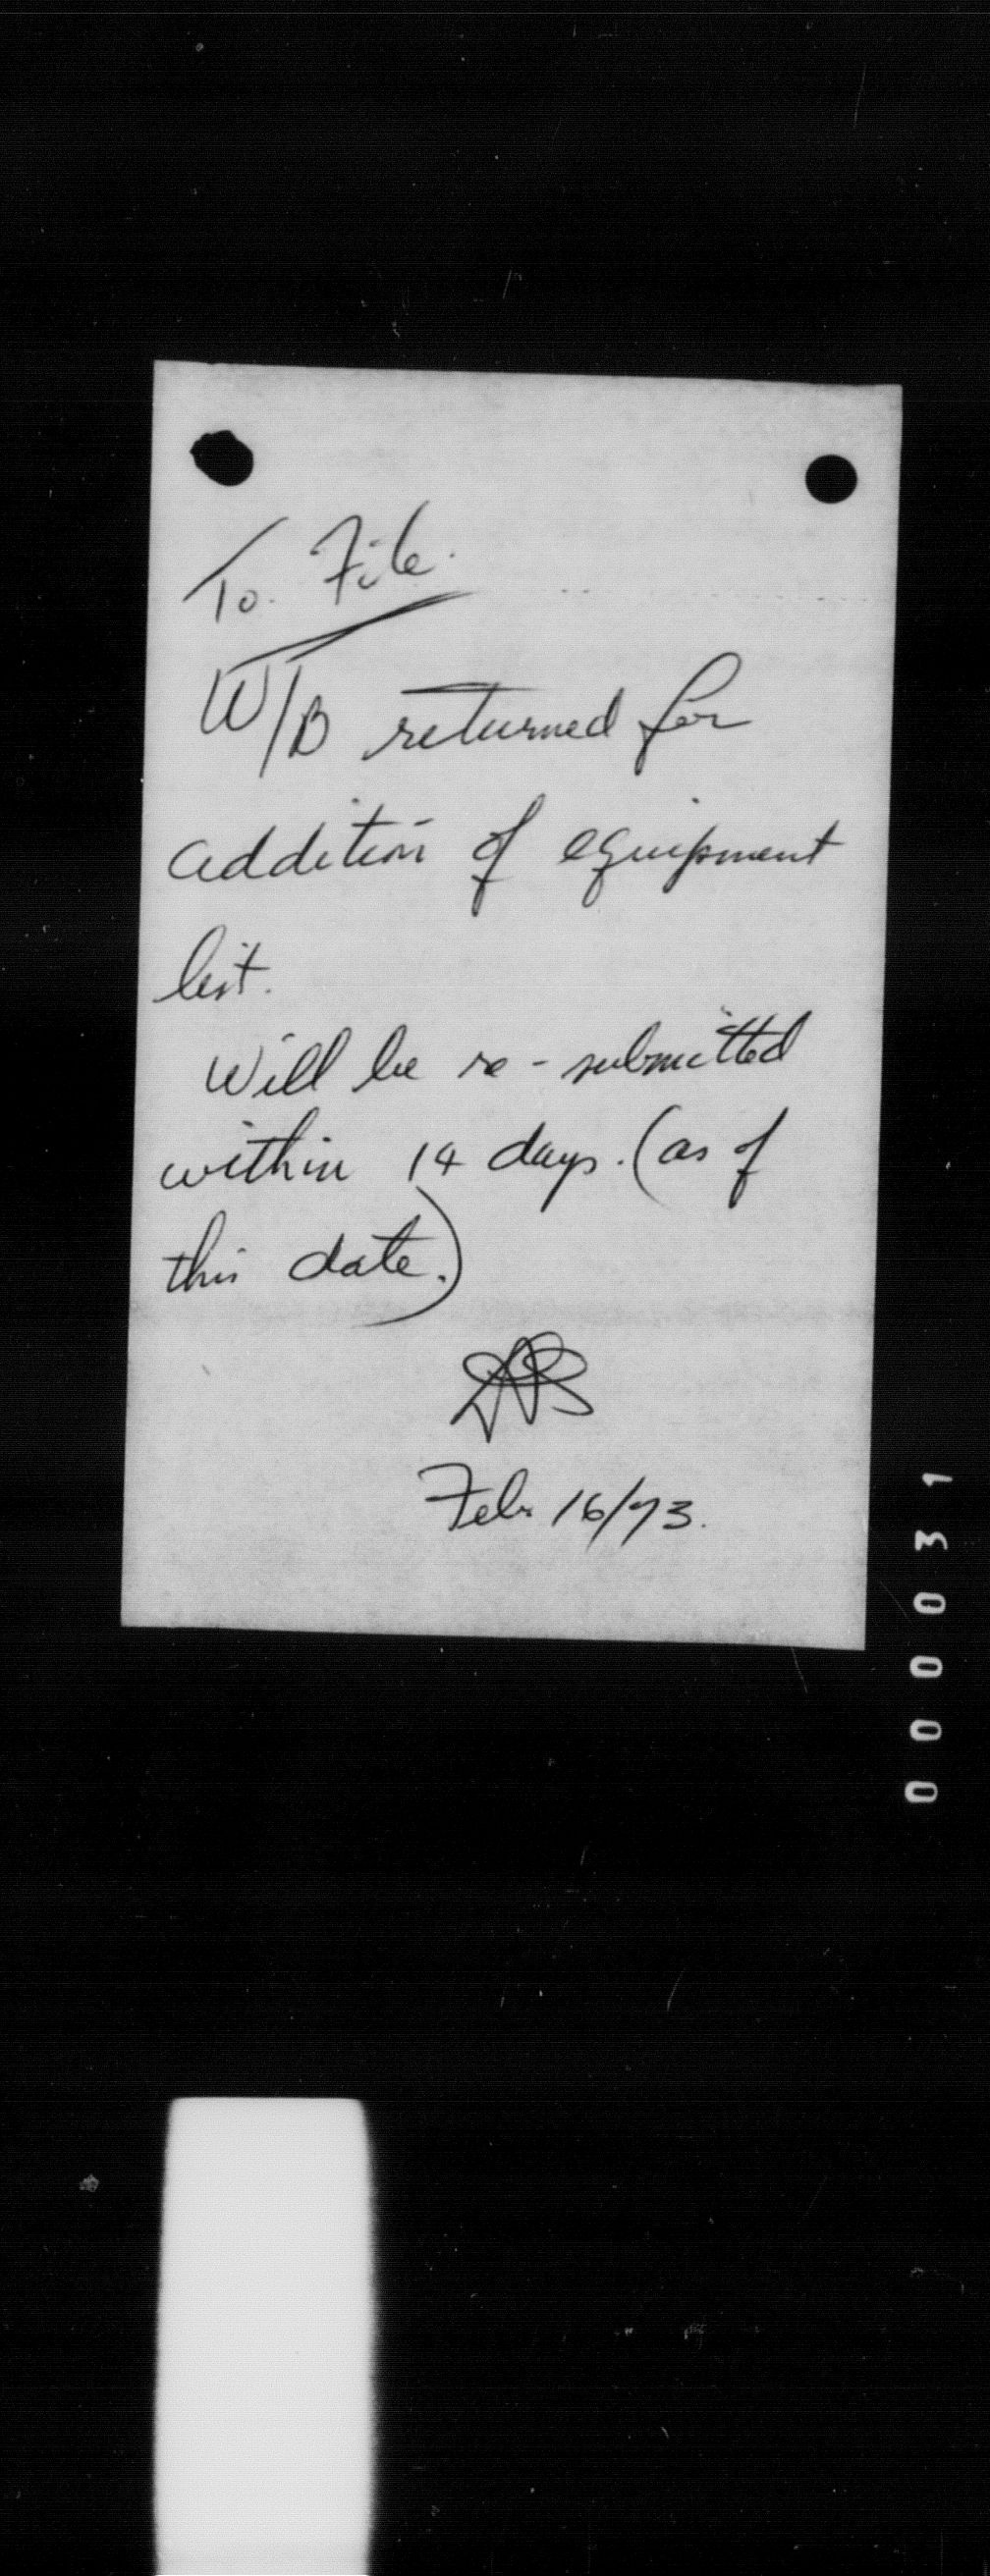 To File.
W/B returned for
addition of equipment
list.
Will be re-submitted
within 14 days. (as of
this date.)
Feb 16/73.
000031